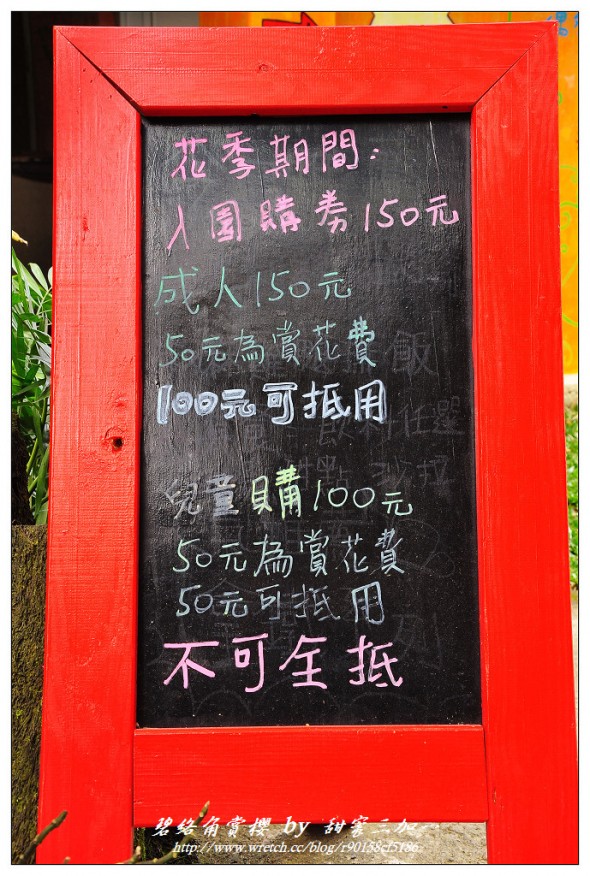 花季期間:
入園購券150元
成人150元
50元為賞花費
100元可抵用
兒童購100元
50元為賞花費
50元可抵用
不可全抵
碧絡角賞櫻 by 甜蜜三加一